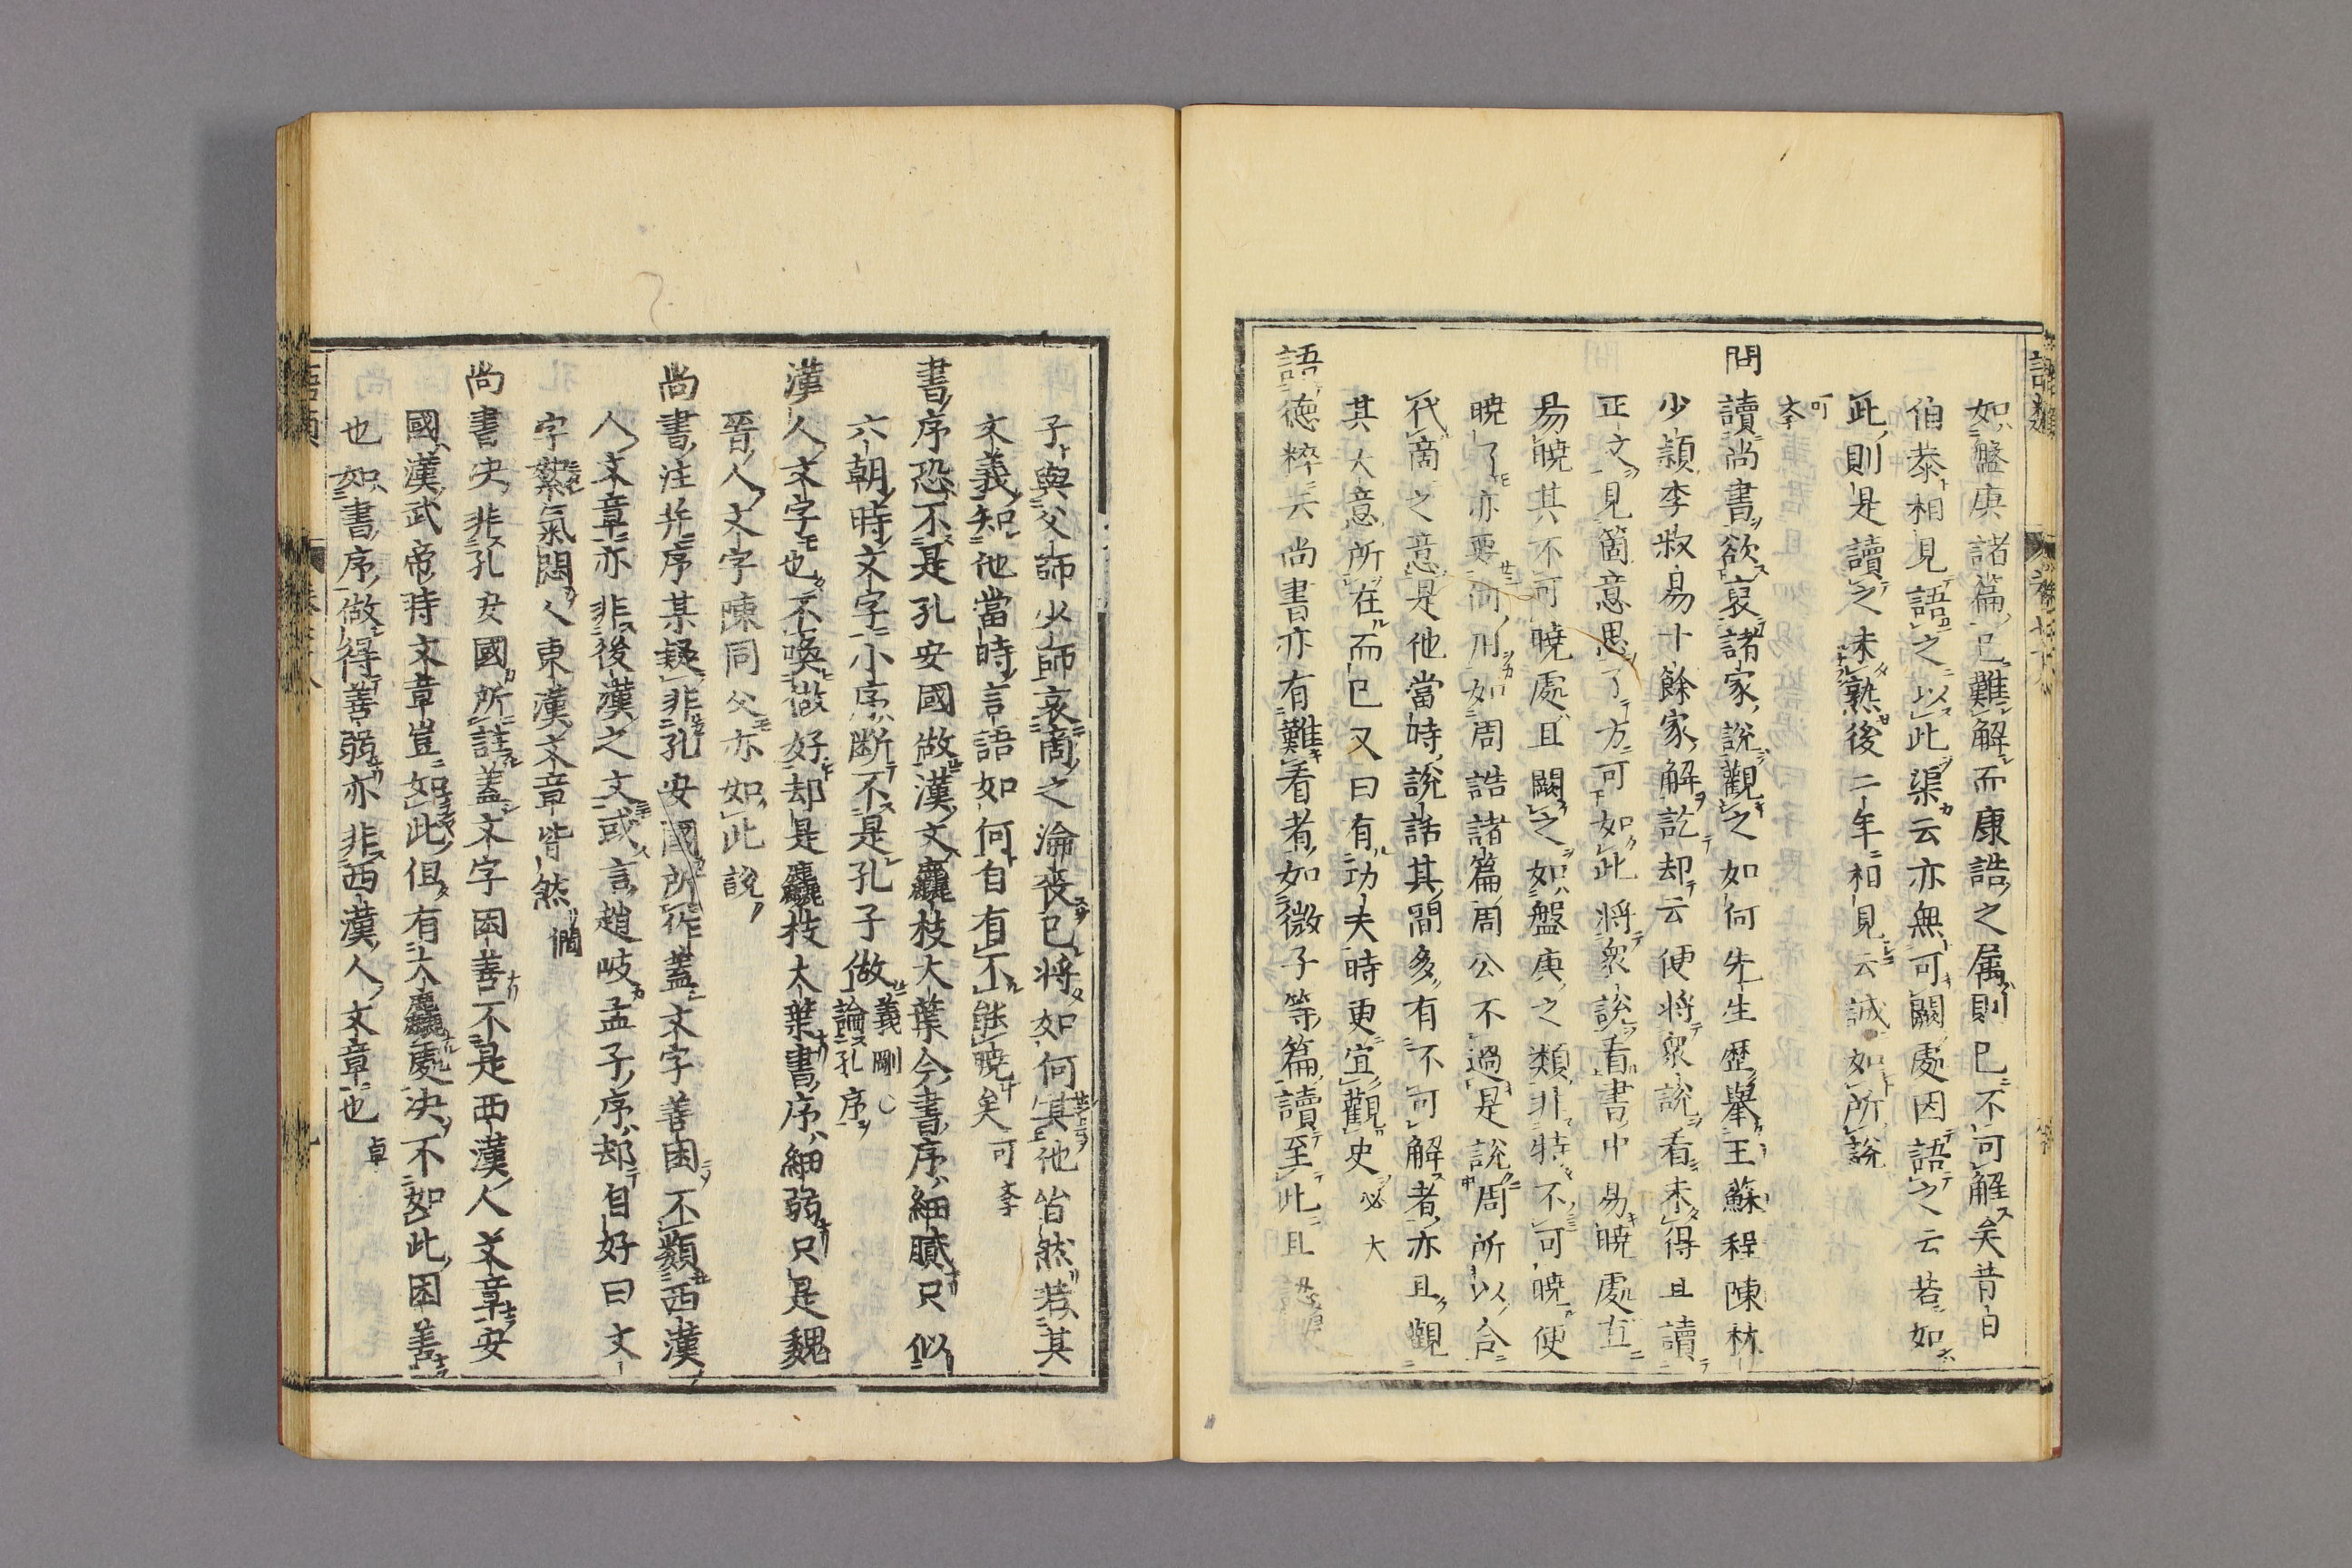 語類
如盤庚諸篇已難解而康誥之属則已不可解矣昔日
伯恭相見語之以此渠云亦無可闕處因語之云若如
此則是讀之未熟後二年相見云誠如所說
可李
問讀尚書欲裒諸家說觀之如何先生歷舉王蘇程陳林
少穎李叔易十餘家解訖却云便將衆說看未得且讀
正文見箇意思了方可如此將衆說看書中易曉處直
易曉其不可曉處且闕之如盤庚之類非特不可曉便
曉了亦要何用如周誥諸篇周公不過是說周所以合
代商之意是他當時說話其間多有不可解者亦且觀
其大意所在而已又曰有功夫時更宜觀史必大
語德粹云尚書亦有難看者如微子等篇讀至此且
子與父師少師哀商之淪喪已將如何其他皆然若其
文義知他當時言語如何自有不能曉矣可李
書序恐不是孔安國做漢文麤枝大葉今書序細膩只似
六朝時文字小序断不是孔子做義剛論孔序
漢人文字也不喚做好却是麤枝大葉書序細弱只是魏
晉人文字陳同父亦如此說
尚書注并序某疑非孔安國所作蓋文字善困不類西漢
人文章亦非後漢之文或言趙岐孟子序却自好曰文
字絮氣悶人東漢文章皆然僩
尚書决非孔安國所註蓋文字困善不是西漢人文章安
國漢武帝時文章豈如此但有太麤處决不如此困善
也如書序做得善弱亦非西漢人文章也卓